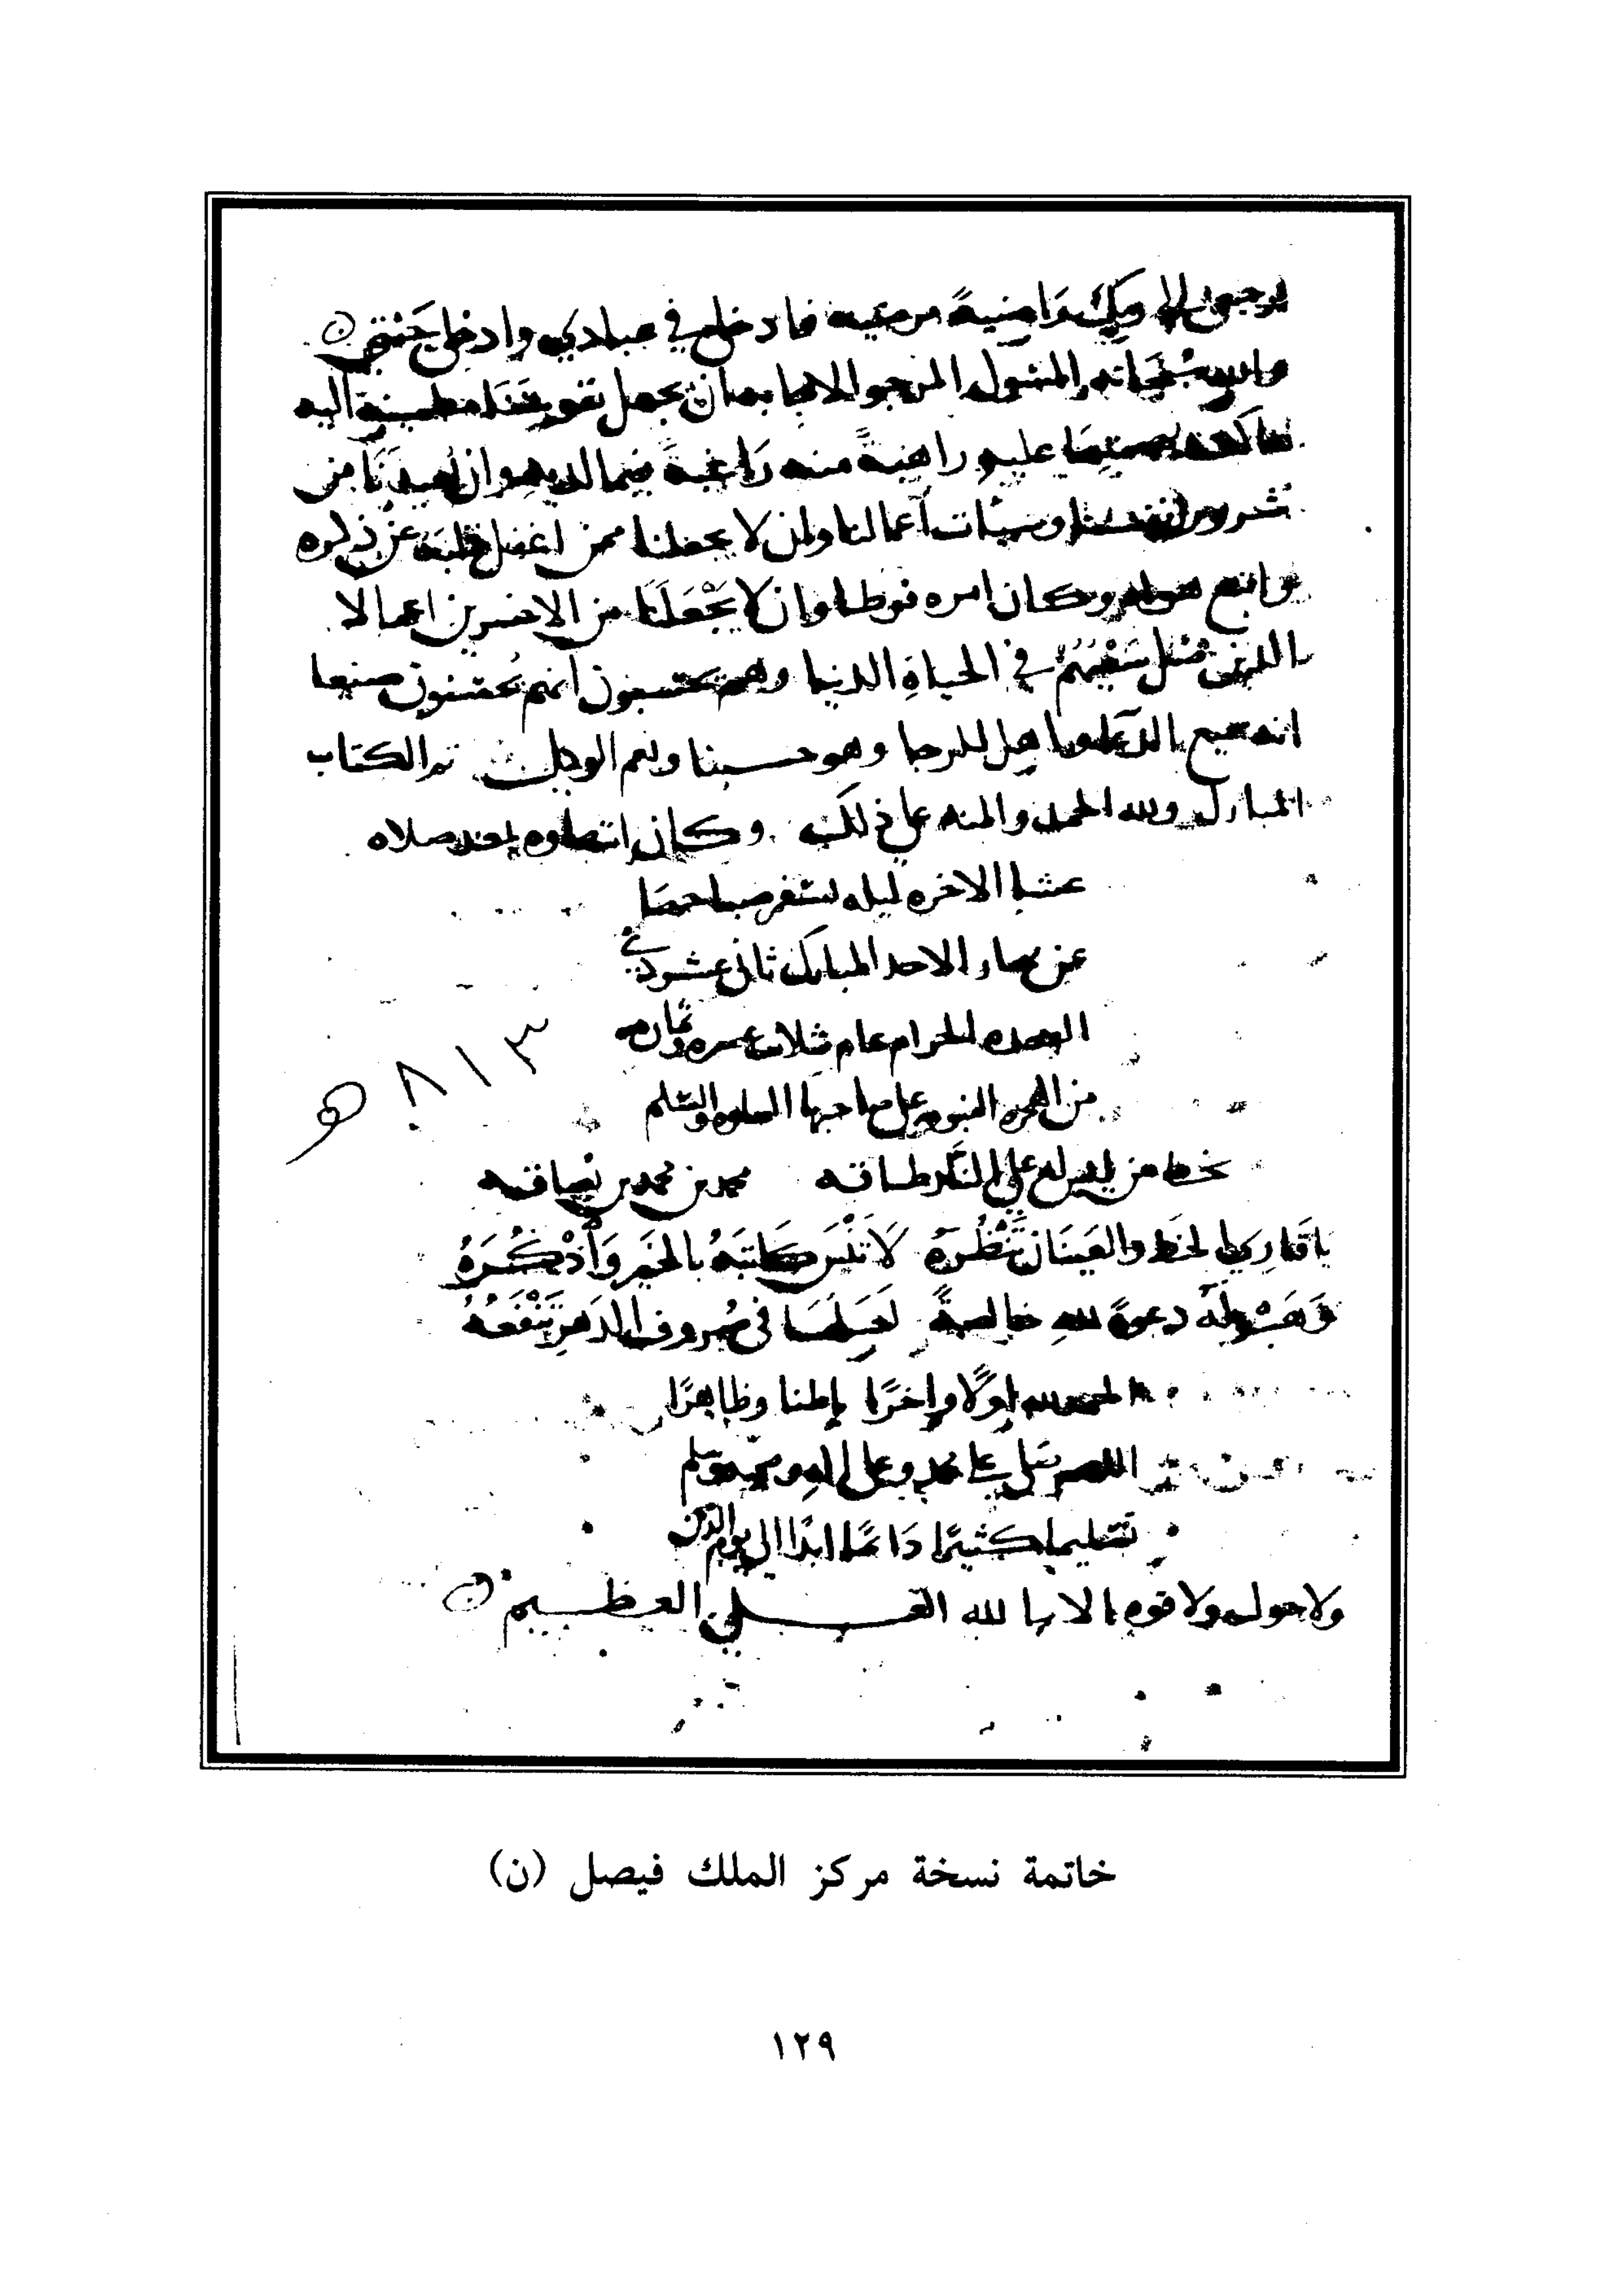 ارجعي الى ربك رَاضيةً مرضيه فادخلي في عبادي وادخلي جَنتي
والله سُبحَانه المسُول المرجو الاجابه ان يجعل نفوسَنَا مطمينة اليه
عاكفه بهمتِهَا عليه راضيةً منه رَاغبةً فيما لديه وان يُعيذنَا من
شرور انفسنا وسيئات أعمالنا وان لا يجعلنا ممن اغفل قلبَه عَن ذكره
واتبع هواه وكان امره فرطا وان لا يَجْعَلنَا من الاخسرين اعمالا
الذين ضل سَعْيُهُمْ في الحياةِ الدنيا وهم يحسبون أنهم يُحسنون صنعا
انه سميع الدعَا واهل الرجا وهو حسبنا ونعم الوكيل تم الكتاب
المبارك ولله الحمد والمنه على ذلك وكان انتهاوه بعد صلاه
عشا الاخره ليله تسفر صباحهَا
عن نهار الاحد المبارك ثانى عشر ذي
القعده الحرام عام ثلاث عشره وثمان مه
من الهجره النبويه على صاحبها الصلوه والسلم
٨١٣ هـ
بخط من ليس له على النار طاقه محمد بن محمد بن
يَا قَارِئ الخَط والعَينَان تَنْظُرَهُ لَا تَنْسَ كَاتبَهُ بالخَير وَأذْكُرَهُ
وَهَبْ لَهُ دعوةً للهِ خالصةً لعَلهَا فى صُروف الدَهرِ تَنْفَعُهُ
الحمد لله اوّلًا واخرًا باطنا وظاهرًا
اللهم صَل على محمد وعلى اله وصحبه وسَلم
تسليما كثيرًا دَائمًا ابدًا الى يوم الدين
ولا حول ولا قوه الا با لله العلى العظيم
خاتمة نسخة مركز الملك فيصل (ن)
١٢٩